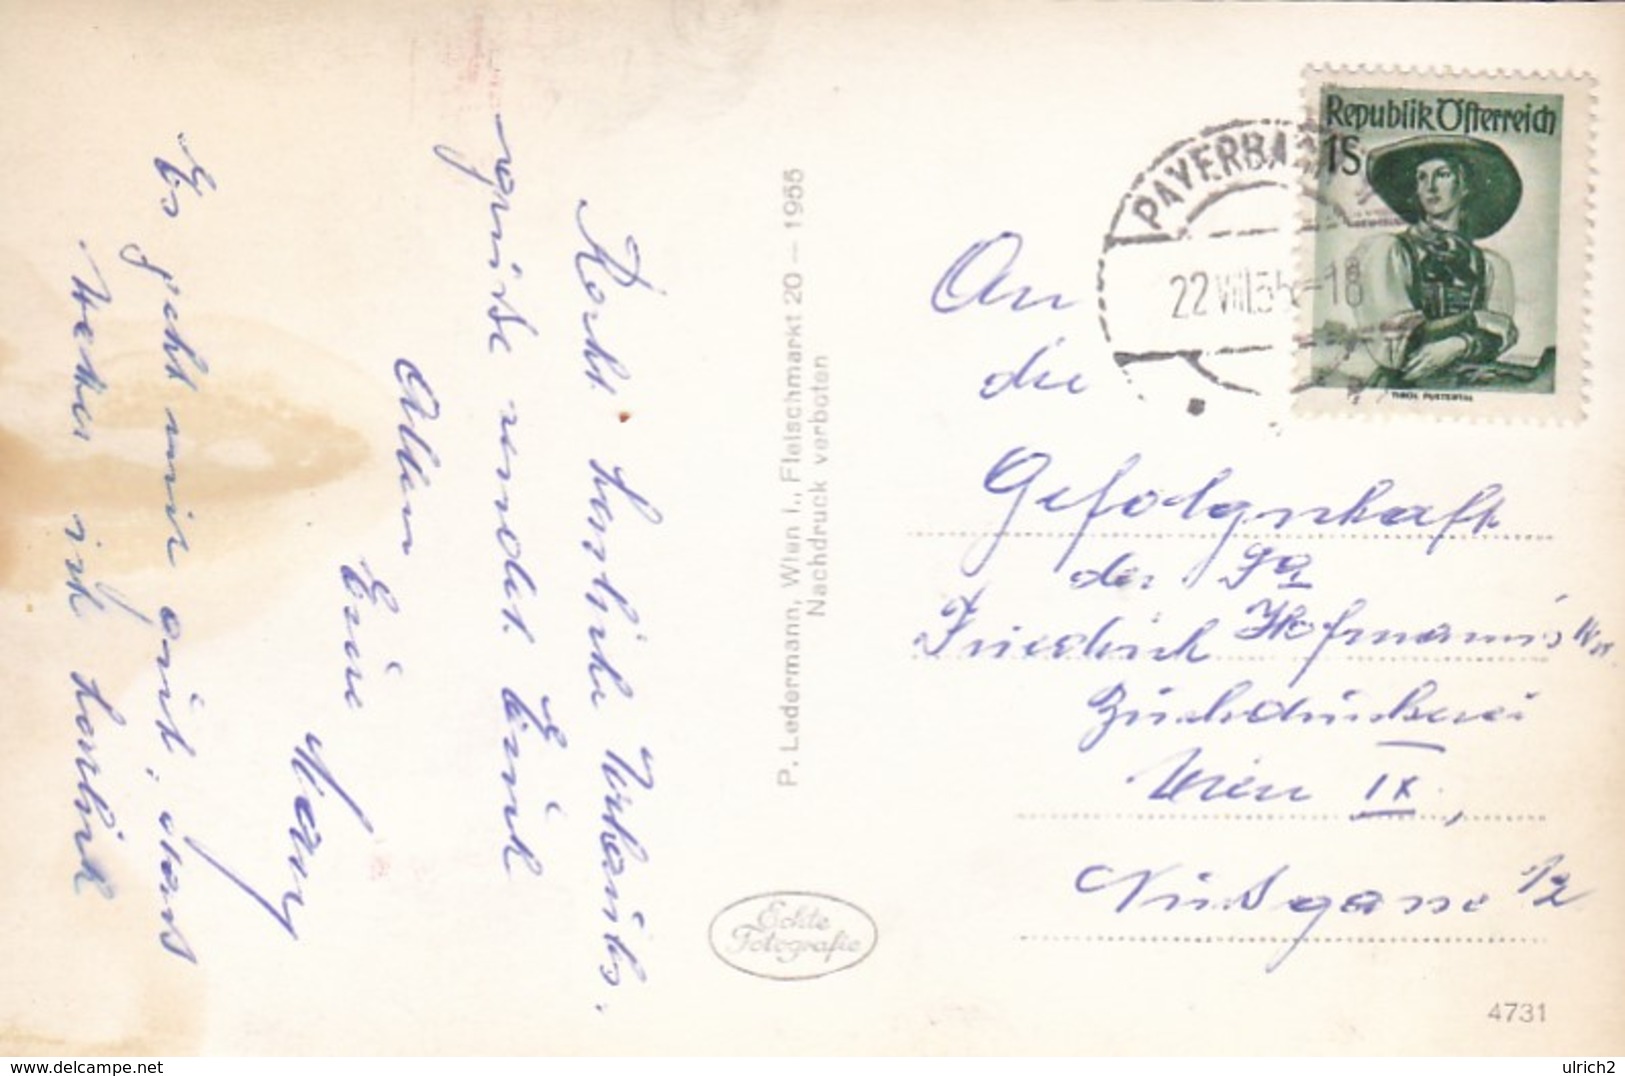 Recht herzliche Urlaubs-
grüsse sendet Euch
Allen
Eure
Mary
Es geht mir gut, das
Wetter ist herrlich
P. Ledermann, Wien I., Fleischmarkt 20 – 1955
Nachdruck verboten
Echte
Fotografie
PAYERBA
22.VIII.55-18
Republik Österreich
1S
TIROL PUSTERTAL
An
die
Gefolgschaft
der Fa
Friedrich Hofmann's Ww
Buchdruckerei
Wien IX,
gasse 12
4731
delcampe.net
ulrich2